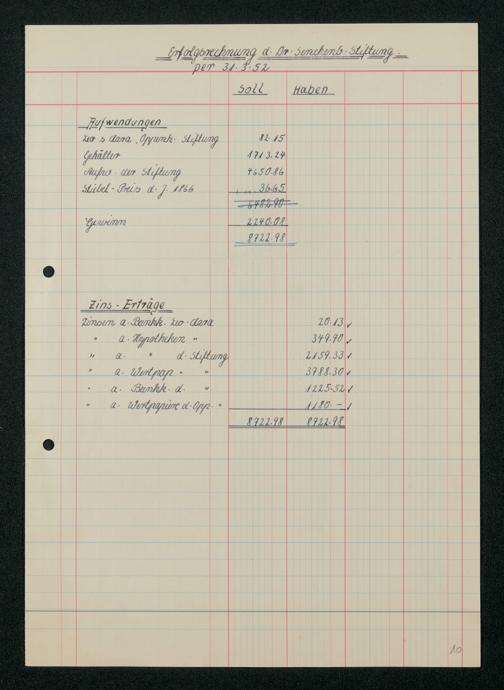 Erfolgsrechnung d. Dr. Senckenb. Stiftung.
per 31.3.52
Soll Haben
Aufwendungen
Oppenh. Stiftung 82.15
Gehälter 1713.24
Aufw. der Stiftung 4650.86
Stiebel-Preis d. J. 1866 36.65
6482.90
Gewinn 2240.08
8722.98
Zins-Erträge
Zinsen a. Bankk. 20.13 ✓
" a. Hypotheken " 349.70 ✓
" a. " d. Stiftung 2159.33 ✓
" a. Wertpap " " 3788.30 ✓
" a. Bankk. d. " 1225.52 ✓
" a. Wertpapiere d. Opp. " 1180.- ✓
8722.98 8722.98
10